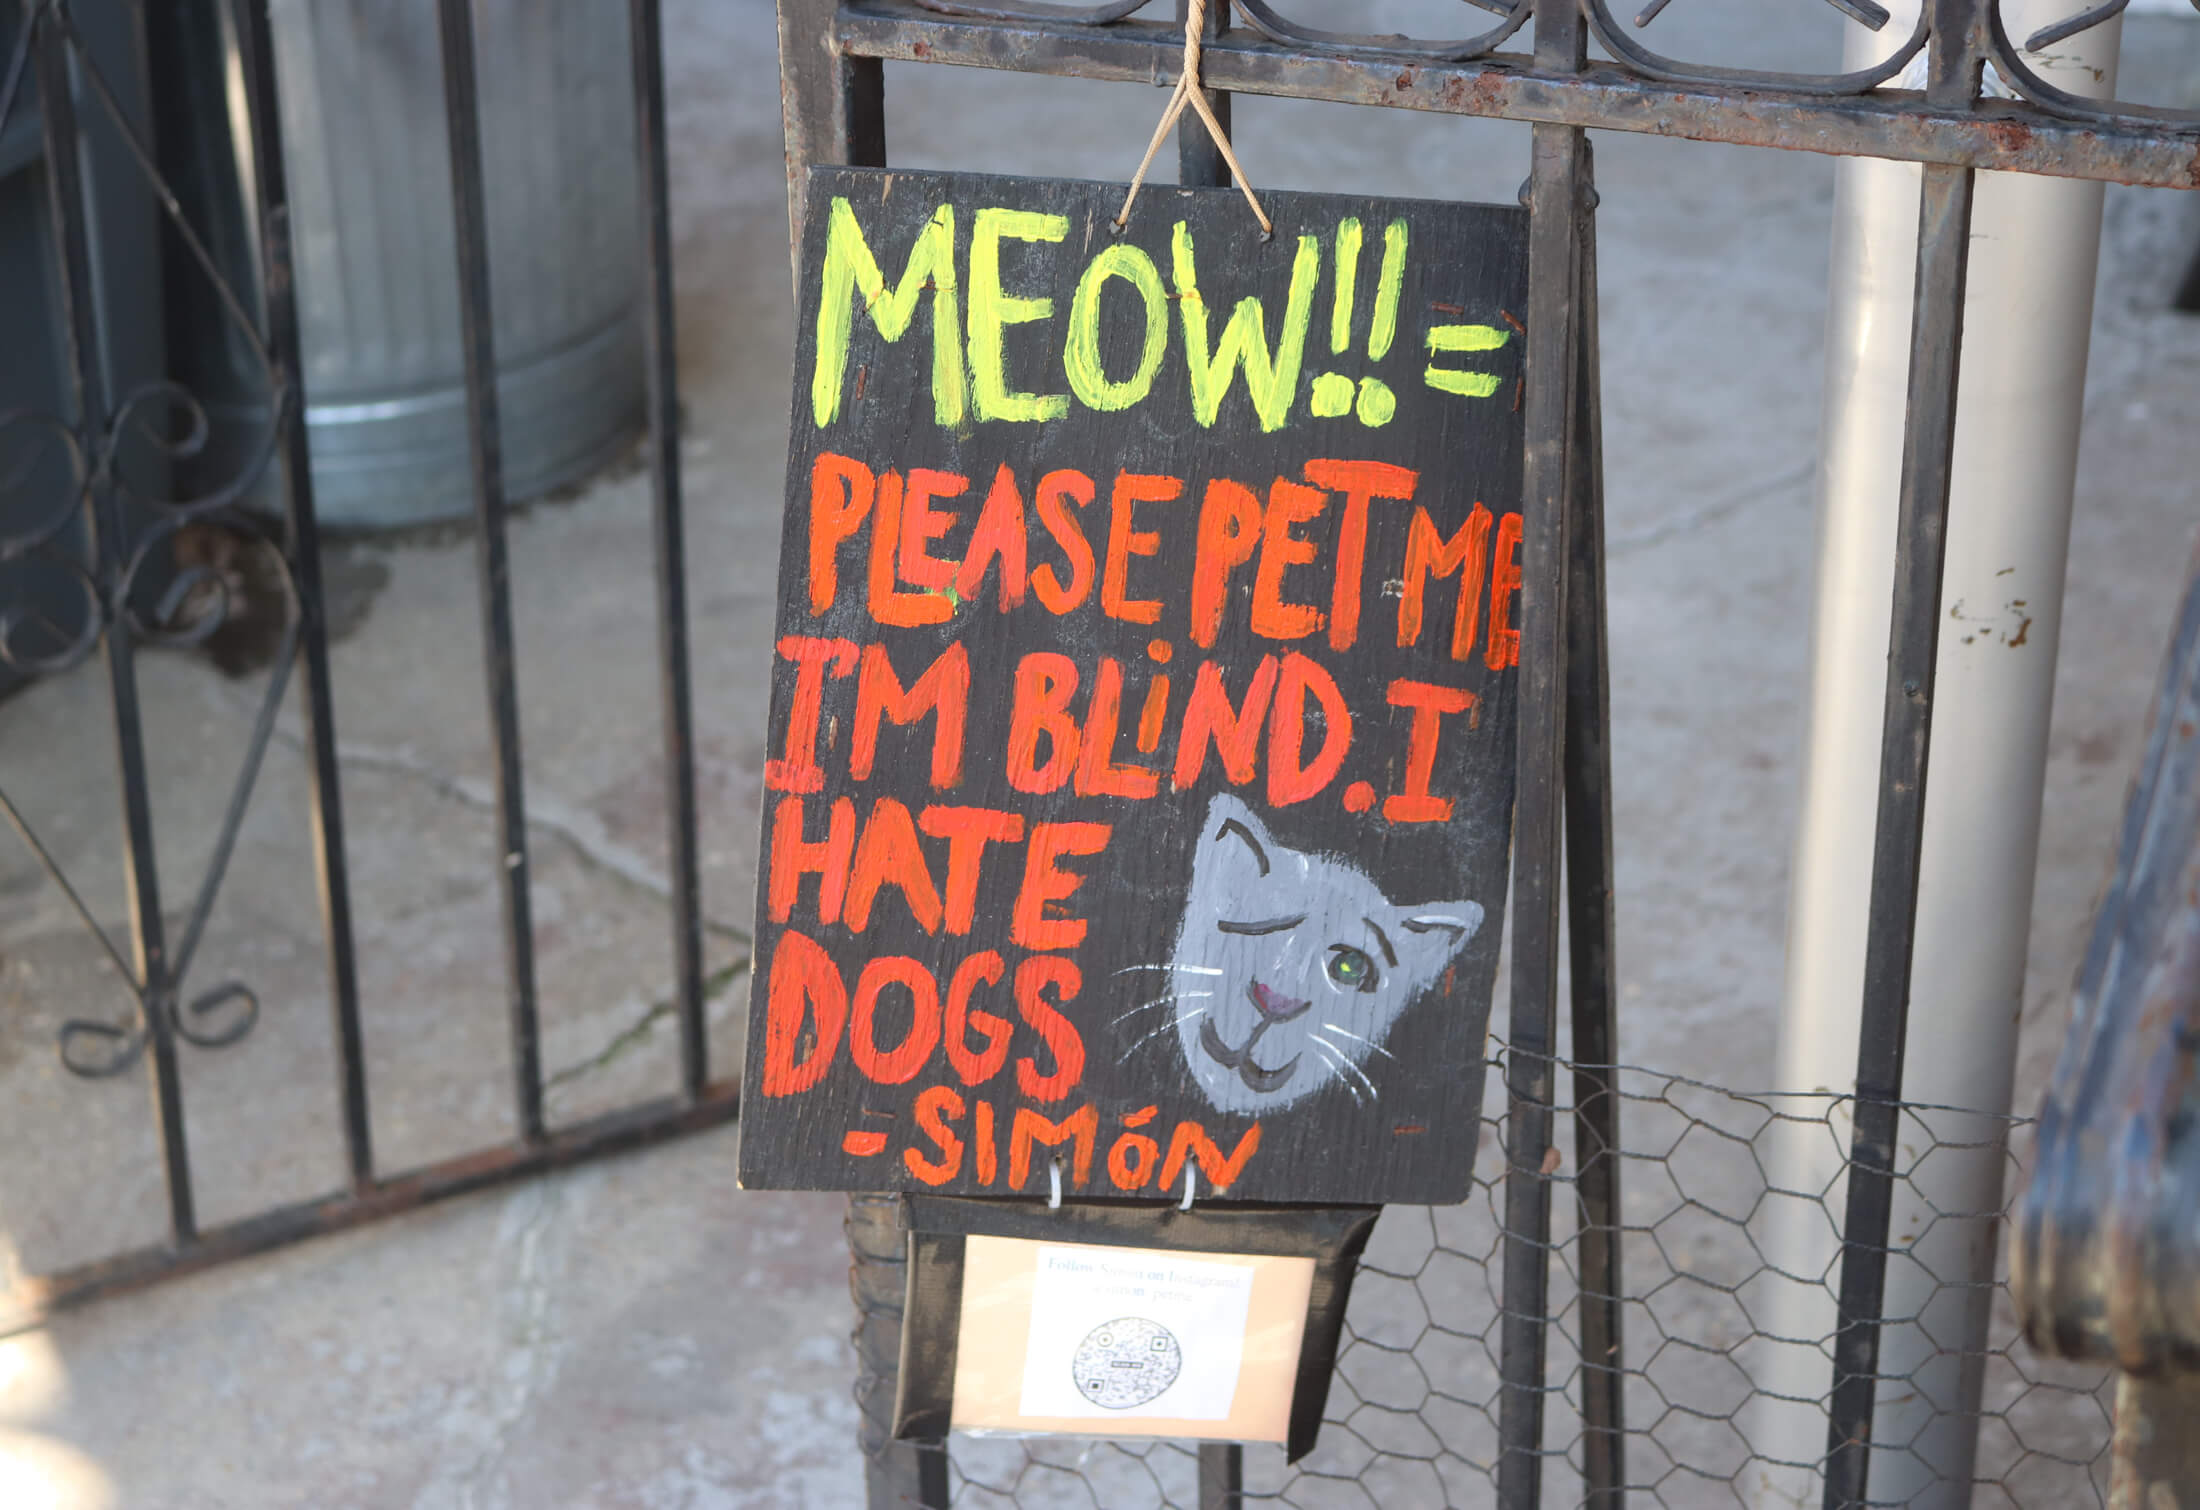 MEOW!! =
PLEASE PET ME
I'M BLiND. I
HATE
DOGS
-SIMóN
Follow Simón on Instagram!